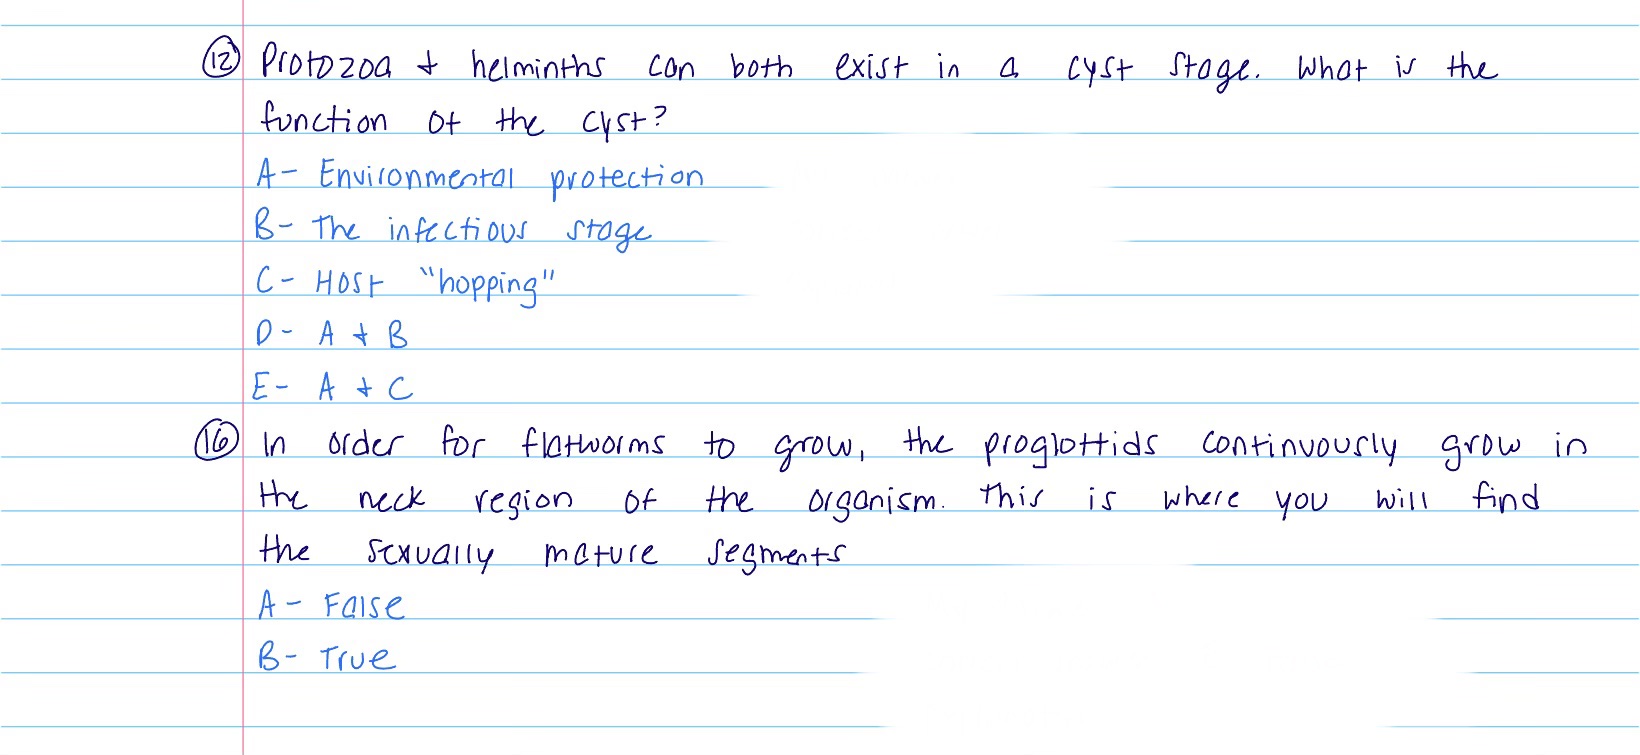 12 Protozoa & helminths can both exist in a cyst stage. What is the
function of the cyst?
A- Environmental protection
B- The infectious stage
C- Host "hopping"
D- A & B
E- A & C
16 In order for flatworms to grow, the proglottids continuously grow in
the neck region of the organism. This is where you will find
the sexually mature segments
A- False
B- True